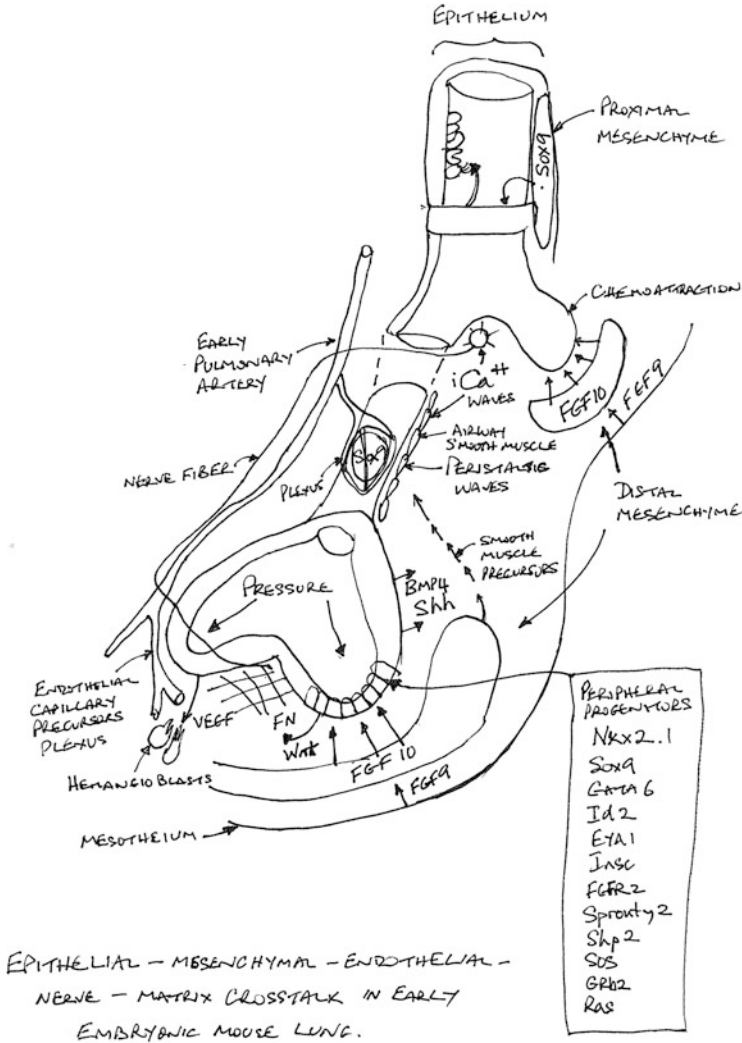 EPITHELIUM
PROXIMAL
MESENCHYME
Sox9
CHEMOATTRACTION
EARLY
PULMONARY
ARTERY
iCa++
WAVES
FGF10
FGF9
AIRWAY
SMOOTH MUSCLE
PERISTALSIS
WAVES
Sox9
PLEXUS
NERVE FIBER
DISTAL
MESENCHYME
SMOOTH
MUSCLE
PRECURSORS
PRESSURE
BMP4
Shh
ENDOTHELIAL
CAPILLARY
PRECURSORS
PLEXUS
VEGF
FN
Wnt
FGF10
FGF9
HEMANGIOBLASTS
MESOTHELIUM
PERIPHERAL
PROGENITORS
Nkx2.1
Sox9
GATA6
Id2
EYA1
Insc
FGFR2
Sprouty2
Shp2
SOS
GRb2
Ras
EPITHELIAL - MESENCHYMAL - ENDOTHELIAL -
NERVE - MATRIX CROSSTALK IN EARLY
EMBRYONIC MOUSE LUNG.